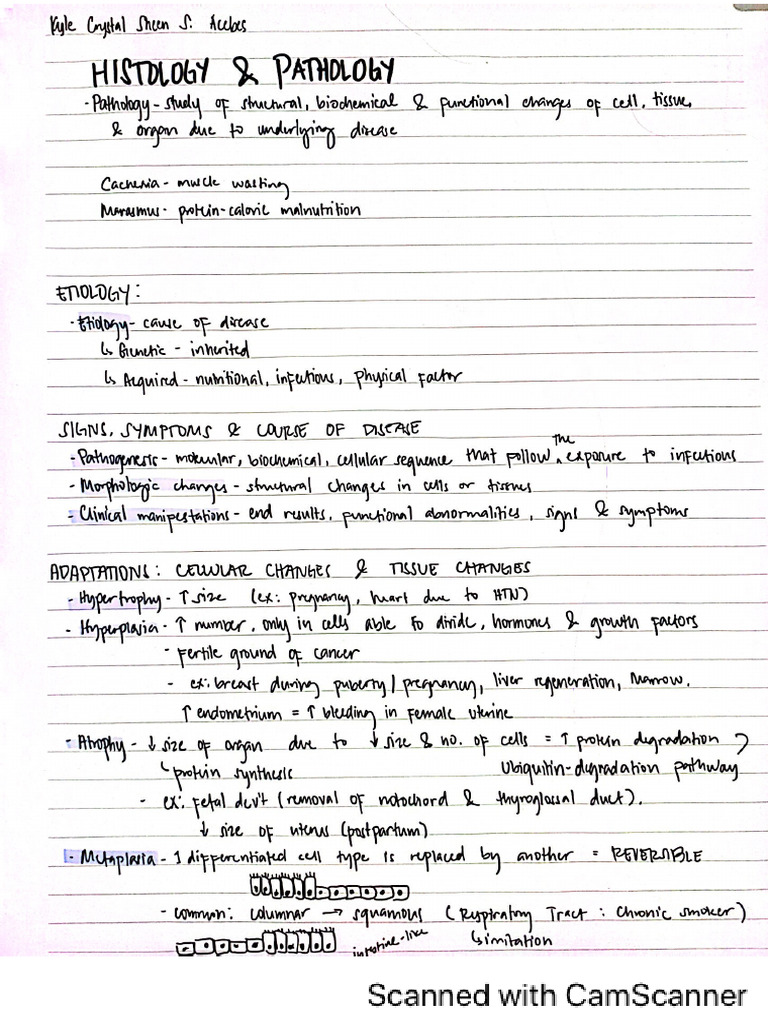 Kyle Crystal Sheen S. Acebes
HISTOLOGY & PATHOLOGY
· Pathology - study of structural, biochemical & functional changes of cell, tissue,
& organ due to underlying disease
Cachexia - muscle wasting
Marasmus - protein-caloric malnutrition
ETIOLOGY:
· Etiology - cause of disease
↳ Genetic - inherited
↳ Acquired - nutritional, infectious, physical factor
SIGNS, SYMPTOMS & COURSE OF DISEASE
· Pathogenesis - molecular, biochemical, cellular sequence that follow the exposure to infectious
· Morphologic changes - structural changes in cells or tissues
· Clinical manipestations - end results, functional abnormalities, signs & symptoms
ADAPTATIONS: CELLULAR CHANGES & TISSUE CHANGES
· Hypertrophy - ↑ size (ex: pregnancy, heart due to HTN)
· Hyperplasia - ↑ number, only in cells able to divide, hormones & growth factors
- fertile ground of cancer
- ex: breast during puberty/pregnancy, liver regeneration, Marrow.
↑ endometrium = ↑ bleeding in female uterine
· Atrophy - ↓ size of organ due to ↓ size & no. of cells = ↑ protein degradation
↳ protein synthesis Ubiquitin-degradation pathway
- ex: fetal dev't (removal of notochord & thyroglossal duct).
↓ size of uterus (postpartum)
· Metaplasia - 1 differentiated cell type is replaced by another = REVERSIBLE
- common: columnar → squamous (Respiratory Tract: Chronic smoker)
intestine-like ↳ irritation
Scanned with CamScanner